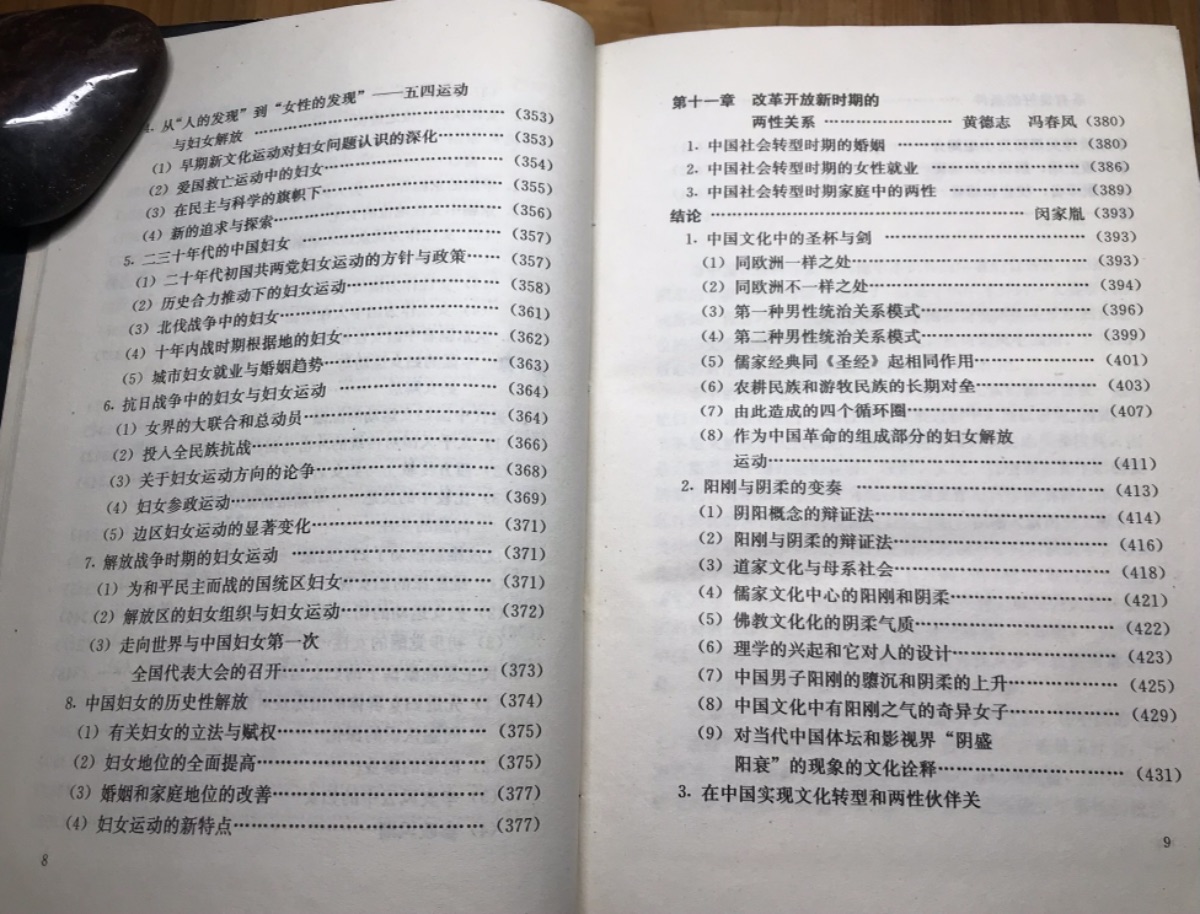 4. 从“人的发现”到“女性的发现”——五四运动
与妇女解放 …………………… (353)
(1) 早期新文化运动对妇女问题认识的深化………… (353)
(2) 爱国救亡运动中的妇女…………………… (354)
(3) 在民主与科学的旗帜下…………………… (355)
(4) 新的追求与探索…………………… (356)
5. 二三十年代的中国妇女 …………………… (357)
(1) 二十年代初国共两党妇女运动的方针与政策…… (357)
(2) 历史合力推动下的妇女运动…………………… (358)
(3) 北伐战争中的妇女…………………… (361)
(4) 十年内战时期根据地的妇女…………………… (362)
(5) 城市妇女就业与婚姻趋势…………………… (363)
6. 抗日战争中的妇女与妇女运动 …………………… (364)
(1) 女界的大联合和总动员…………………… (364)
(2) 投入全民族抗战…………………… (366)
(3) 关于妇女运动方向的论争…………………… (368)
(4) 妇女参政运动…………………… (369)
(5) 边区妇女运动的显著变化…………………… (371)
7. 解放战争时期的妇女运动 …………………… (371)
(1) 为和平民主而战的国统区妇女…………………… (371)
(2) 解放区的妇女组织与妇女运动…………………… (372)
(3) 走向世界与中国妇女第一次
全国代表大会的召开…………………… (373)
8. 中国妇女的历史性解放 …………………… (374)
(1) 有关妇女的立法与赋权…………………… (375)
(2) 妇女地位的全面提高…………………… (375)
(3) 婚姻和家庭地位的改善…………………… (377)
(4) 妇女运动的新特点…………………… (377)
8
第十一章 改革开放新时期的
两性关系 …………………… 黄德志 冯春凤 (380)
1. 中国社会转型时期的婚姻 …………………… (380)
2. 中国社会转型时期的女性就业 …………………… (386)
3. 中国社会转型时期家庭中的两性 …………………… (389)
结论 …………………… 闵家胤 (393)
1. 中国文化中的圣杯与剑 …………………… (393)
(1) 同欧洲一样之处…………………… (393)
(2) 同欧洲不一样之处…………………… (394)
(3) 第一种男性统治关系模式…………………… (396)
(4) 第二种男性统治关系模式…………………… (399)
(5) 儒家经典同《圣经》起相同作用…………………… (401)
(6) 农耕民族和游牧民族的长期对垒…………………… (403)
(7) 由此造成的四个循环圈…………………… (407)
(8) 作为中国革命的组成部分的妇女解放
运动…………………… (411)
2. 阳刚与阴柔的变奏 …………………… (413)
(1) 阴阳概念的辩证法…………………… (414)
(2) 阳刚与阴柔的辩证法…………………… (416)
(3) 道家文化与母系社会…………………… (418)
(4) 儒家文化中心的阳刚和阴柔…………………… (421)
(5) 佛教文化化的阴柔气质…………………… (422)
(6) 理学的兴起和它对人的设计…………………… (423)
(7) 中国男子阳刚的隳沉和阴柔的上升…………………… (425)
(8) 中国文化中有阳刚之气的奇异女子…………………… (429)
(9) 对当代中国体坛和影视界“阴盛
阳衰”的现象的文化诠释…………………… (431)
3. 在中国实现文化转型和两性伙伴关
9